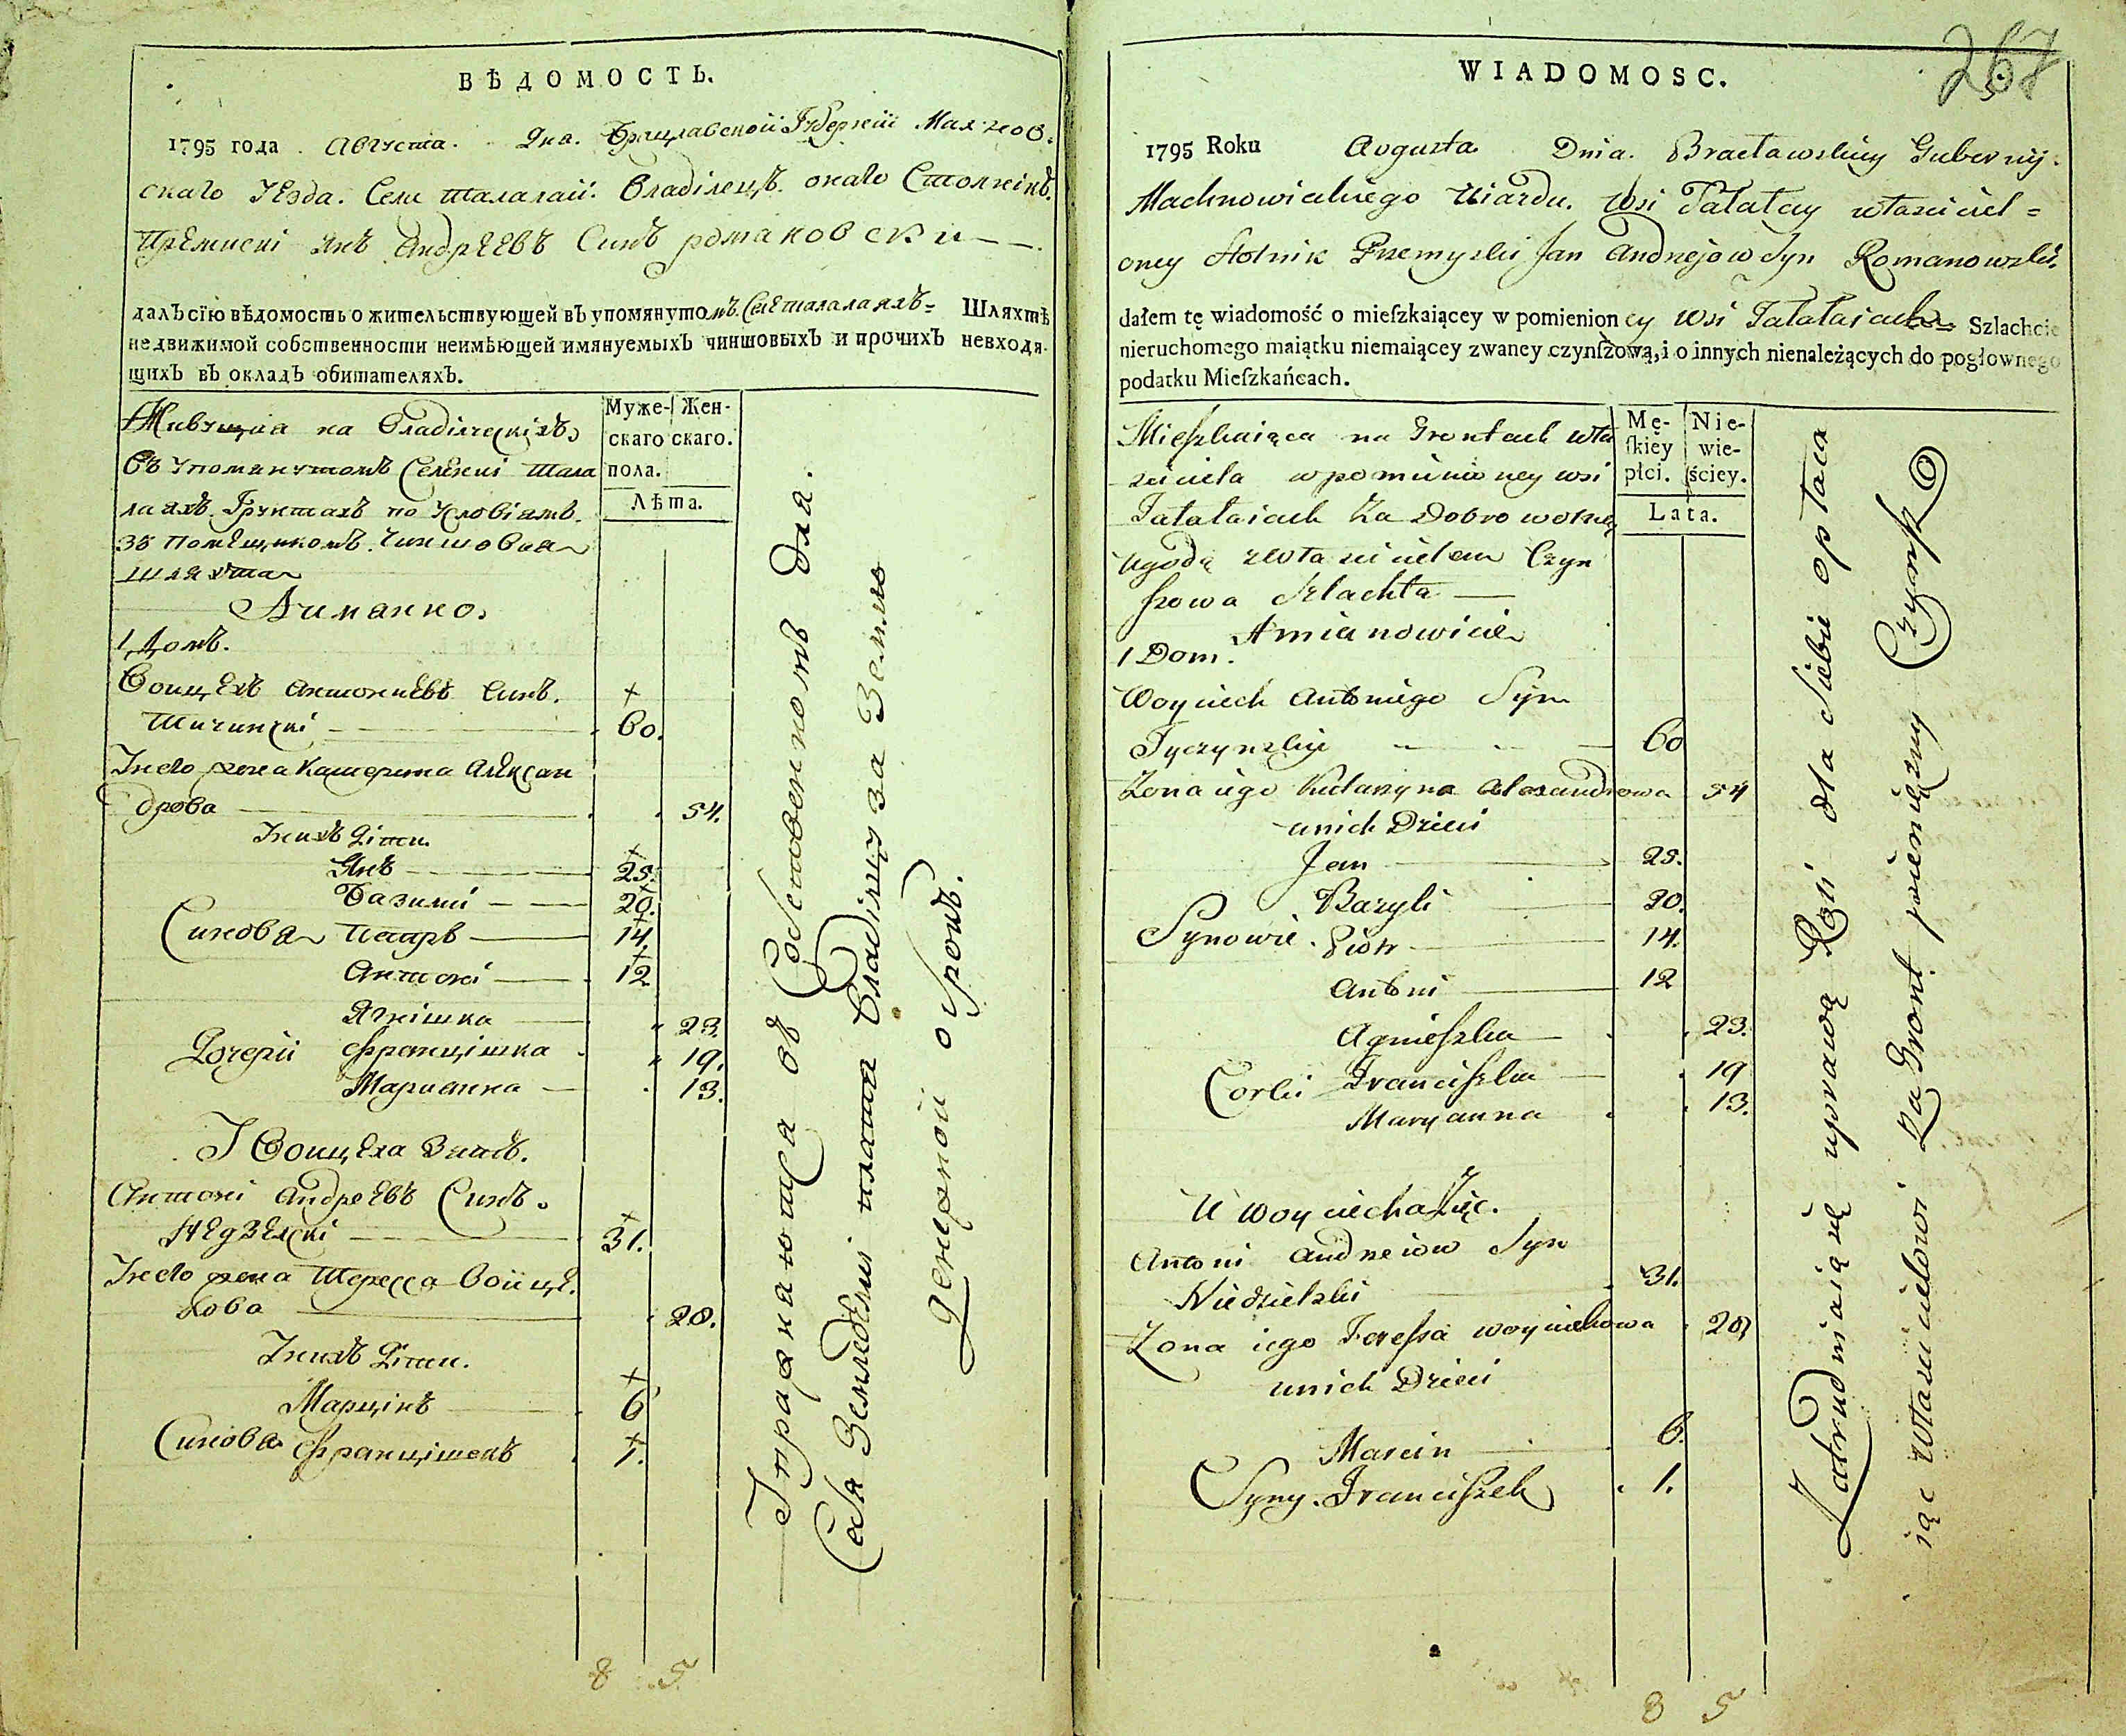 ВѢДОМОСТЬ.
1795 года Августа. Дня. Брацлавской Губернїи Махнов-
скаго Уезда. Села Талалай. Владілецъ онаго Столникъ
Премискі Янъ Андреевъ Синъ романовски
далъ сїю вѣдомость о жительствующей въ упомянутомъ Селе талалаяхъ Шляхтѣ
недвижимой собственности неимѣющей имянуемыхъ чиншовыхъ и прочихъ невходя-
щихъ въ окладъ обитателяхъ.
Муже- Жен-
скаго скаго.
пола.
Лѣта.
Живущиа на Владілескіхъ
въ упоманутомъ Селенні Тала
лаахъ. Грунтахъ по Условіамъ
зъ помещикомъ. Чиншоваа
шляхта
1 Домъ.
Воицехъ Антониевъ Синъ.
Тичинскі 60.
У него жена Катерина Алексан
дрова 54.
У нихъ Діти.
Янъ 25.
Базилиі 20.
Синова Петръ 14.
Антоні 12
Ягнішка 23.
Дочерїи Францішка 19.
Марианна 13.
У Воицеха Зять.
Антоні Андреевъ Синъ.
Недзелскі 31.
У него жена Тересса Воице-
хова 28.
У нихъ Діти.
Марцінъ 6
Синова Францішекъ 1.
8 5
Упражнаютса объ Собственномъ для
Себя Земледѣлиі плата Владілцу за Землю
Денежной оброкъ.
267
WIADOMOSC.
1795 Roku Avgusta Dnia. Bracławskiey Guberniy.
Machnowickiego Uiazdu. Wsi Tałałay własciciel=
oney Stolnik Przemyski Jan Andrzejow Syn Romanowski.
dałem tę wiadomość o mieſzkaiącey w pomienioney Wsi Tałałaiach Szlachcie
nieruchomego maiątku niemaiącey zwaney czynſzową, i o innych nienależących do pogłownego
podatku Mieſzkańcach.
Mę- Nie-
ſkiey wie-
płci. ściey.
Lata.
Mieſzkaiąca na Grontach wła
sciciela w pomienioney wsi
Tałałaiach Za Dobrowolną
ugodą z własicielem Czyn
ſzowa Szlachta
Amianowicie
1 Dom.
Woyciech Antoniego Syn
Tyczynski 60
Zona iego Katarzyna Alexandrowa 54
u nich Dzieci
Jan 25.
Bazyli 20.
Synowie. Piotr 14.
Antoni 12
Agnieſzka 23.
Corki Franciſzka 19
Maryanna 13.
U Woyciecha Zięc.
Antoni Andrzeiow Syn
Niedzielski 31.
Zona iego Tereſsa Woyciechowa 28
u nich Dzieci
Marcin 6.
Syny. Franciſzek 1.
8 5
Zatrudniaią się uprawą Roli dla Siebie opłaca
iąc Własicielowi Za Gront pieniężny Czynsz